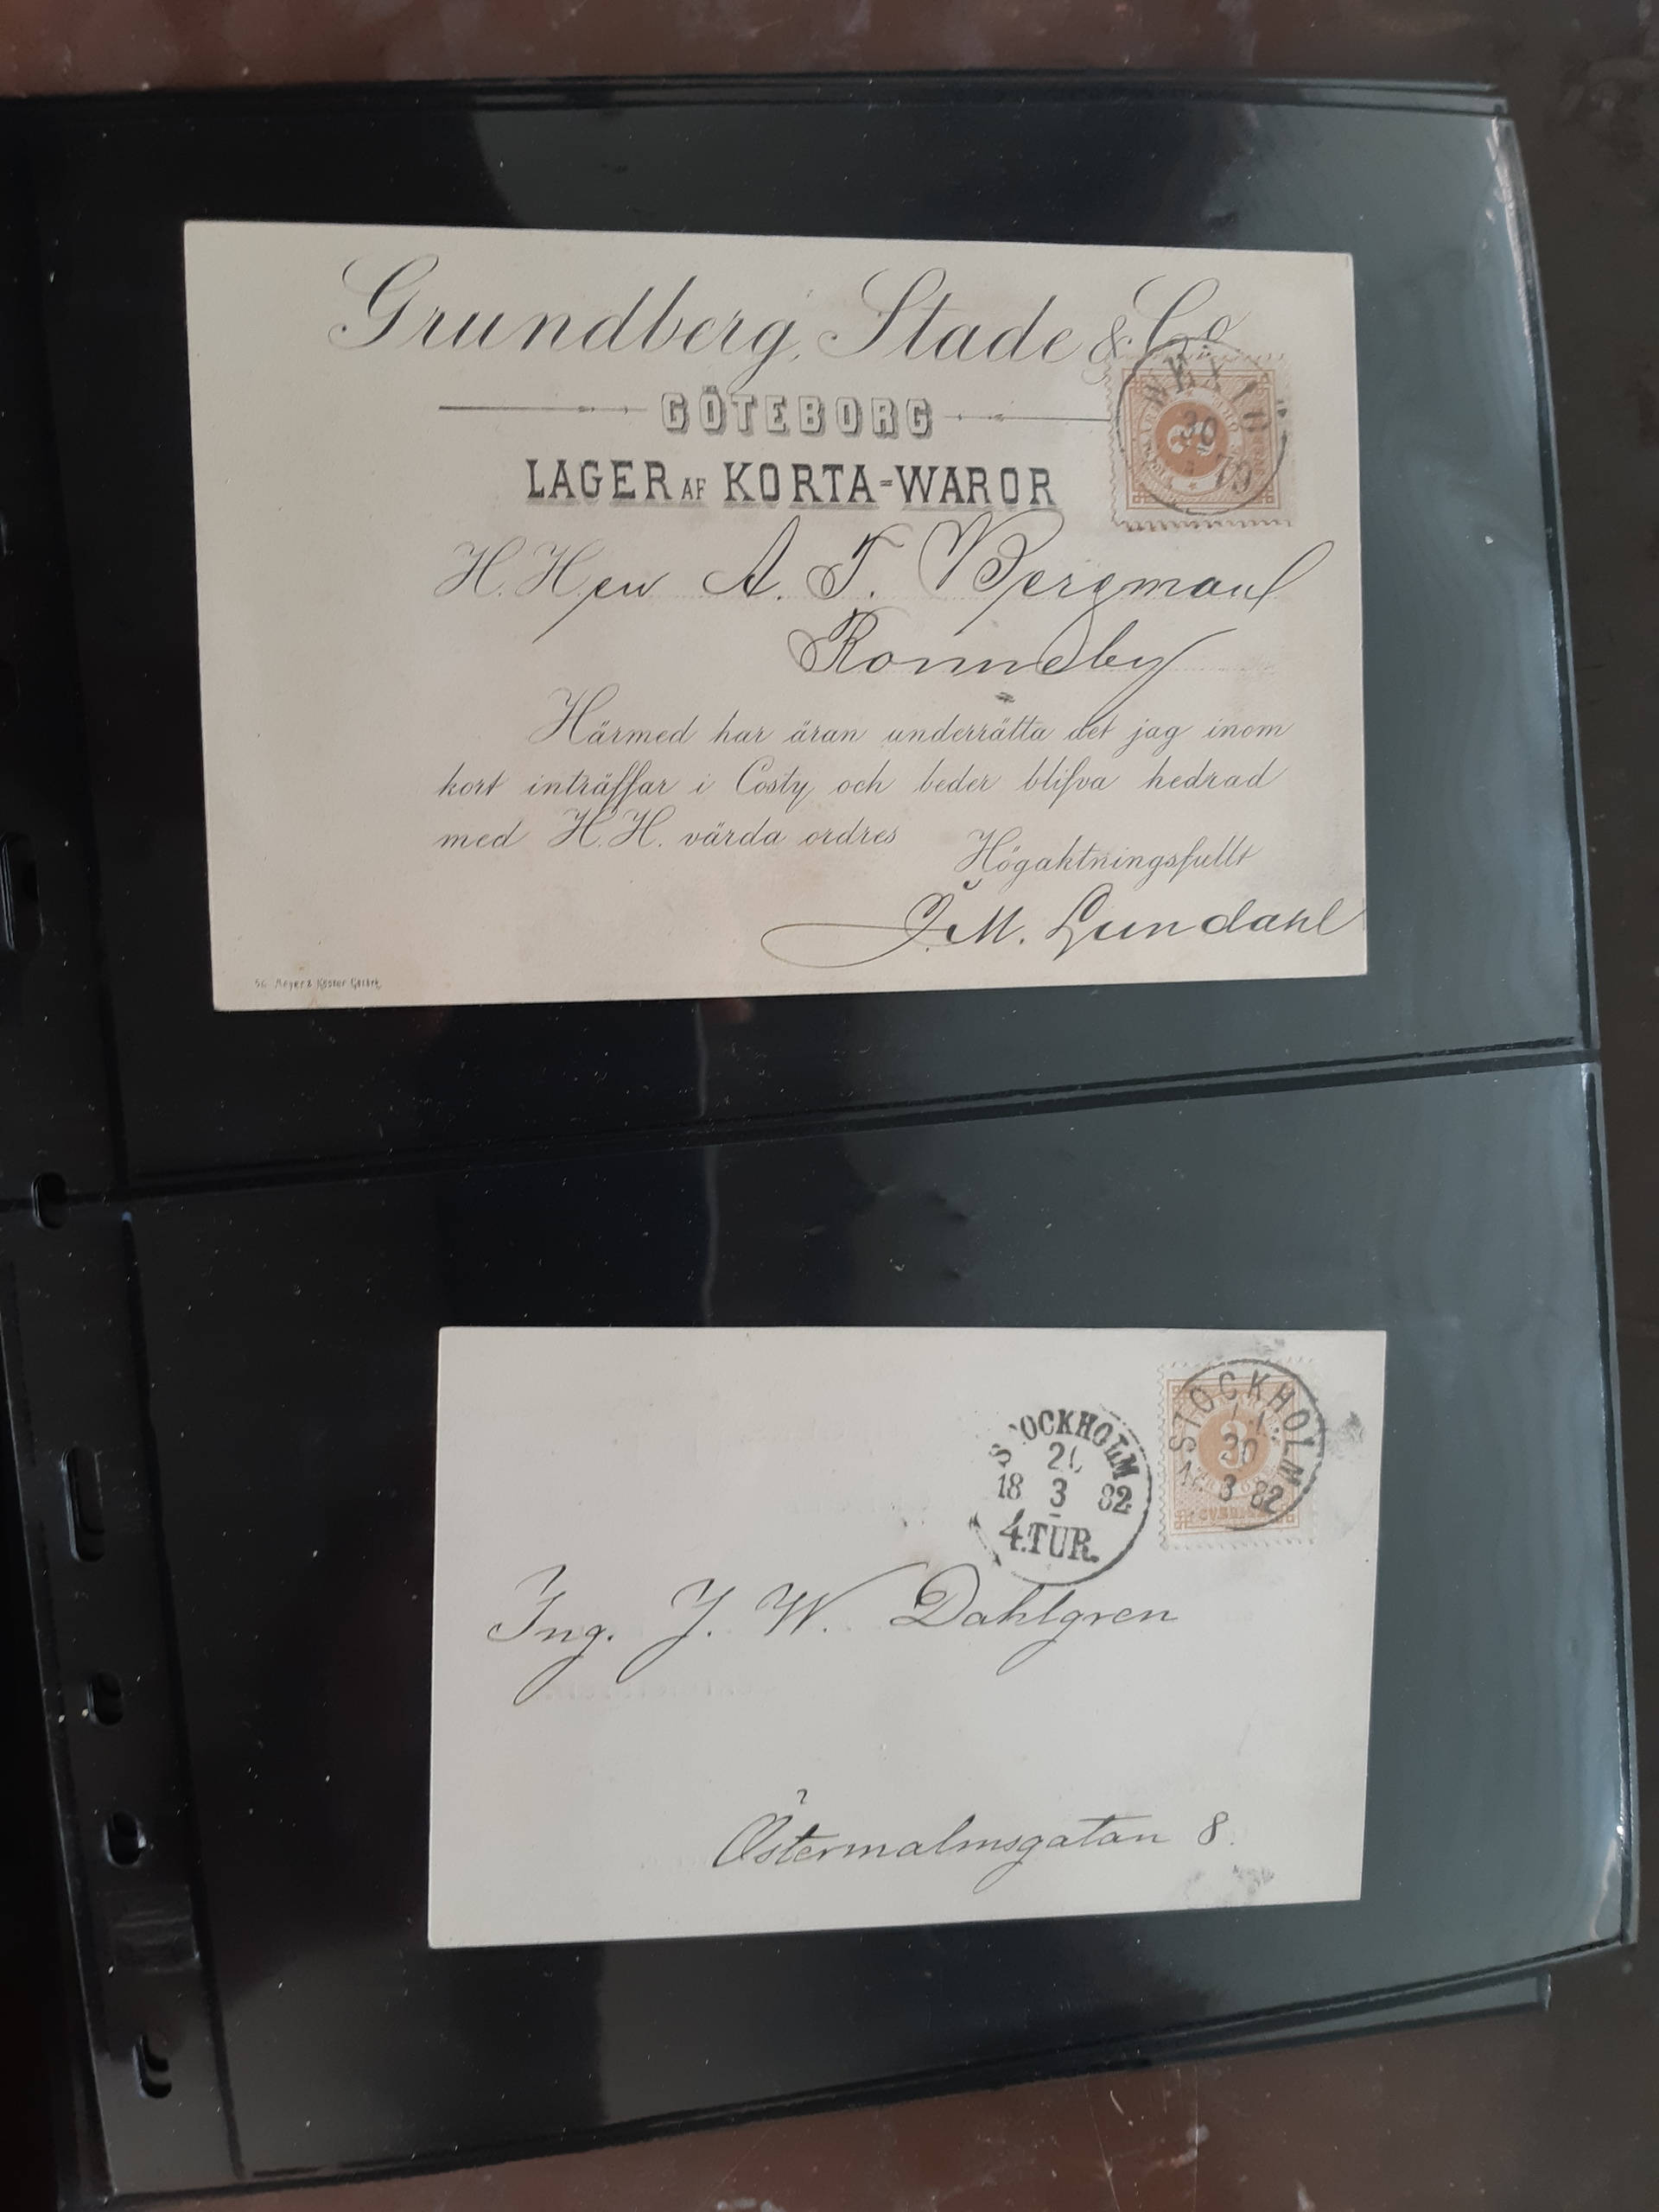 Grundberg, Stade & Co
GÖTEBORG
LAGER AF KORTA-WAROR
WEXIÖ
30
79
3
H. Herr A. F. Bergman
Ronneby
Härmed har äran underrätta det jag inom
kort inträffar i Costy och beder blifva hedrad
med H.H. värda ordres
Högaktningsfullt
J. M. Lundahl
STOCKHOLM
18 3 82
4.TUR.
STOCKHOLM
20
3 82
3
SVERIGE
Ing. J. W. Dahlgren
Östermalmsgatan 8.